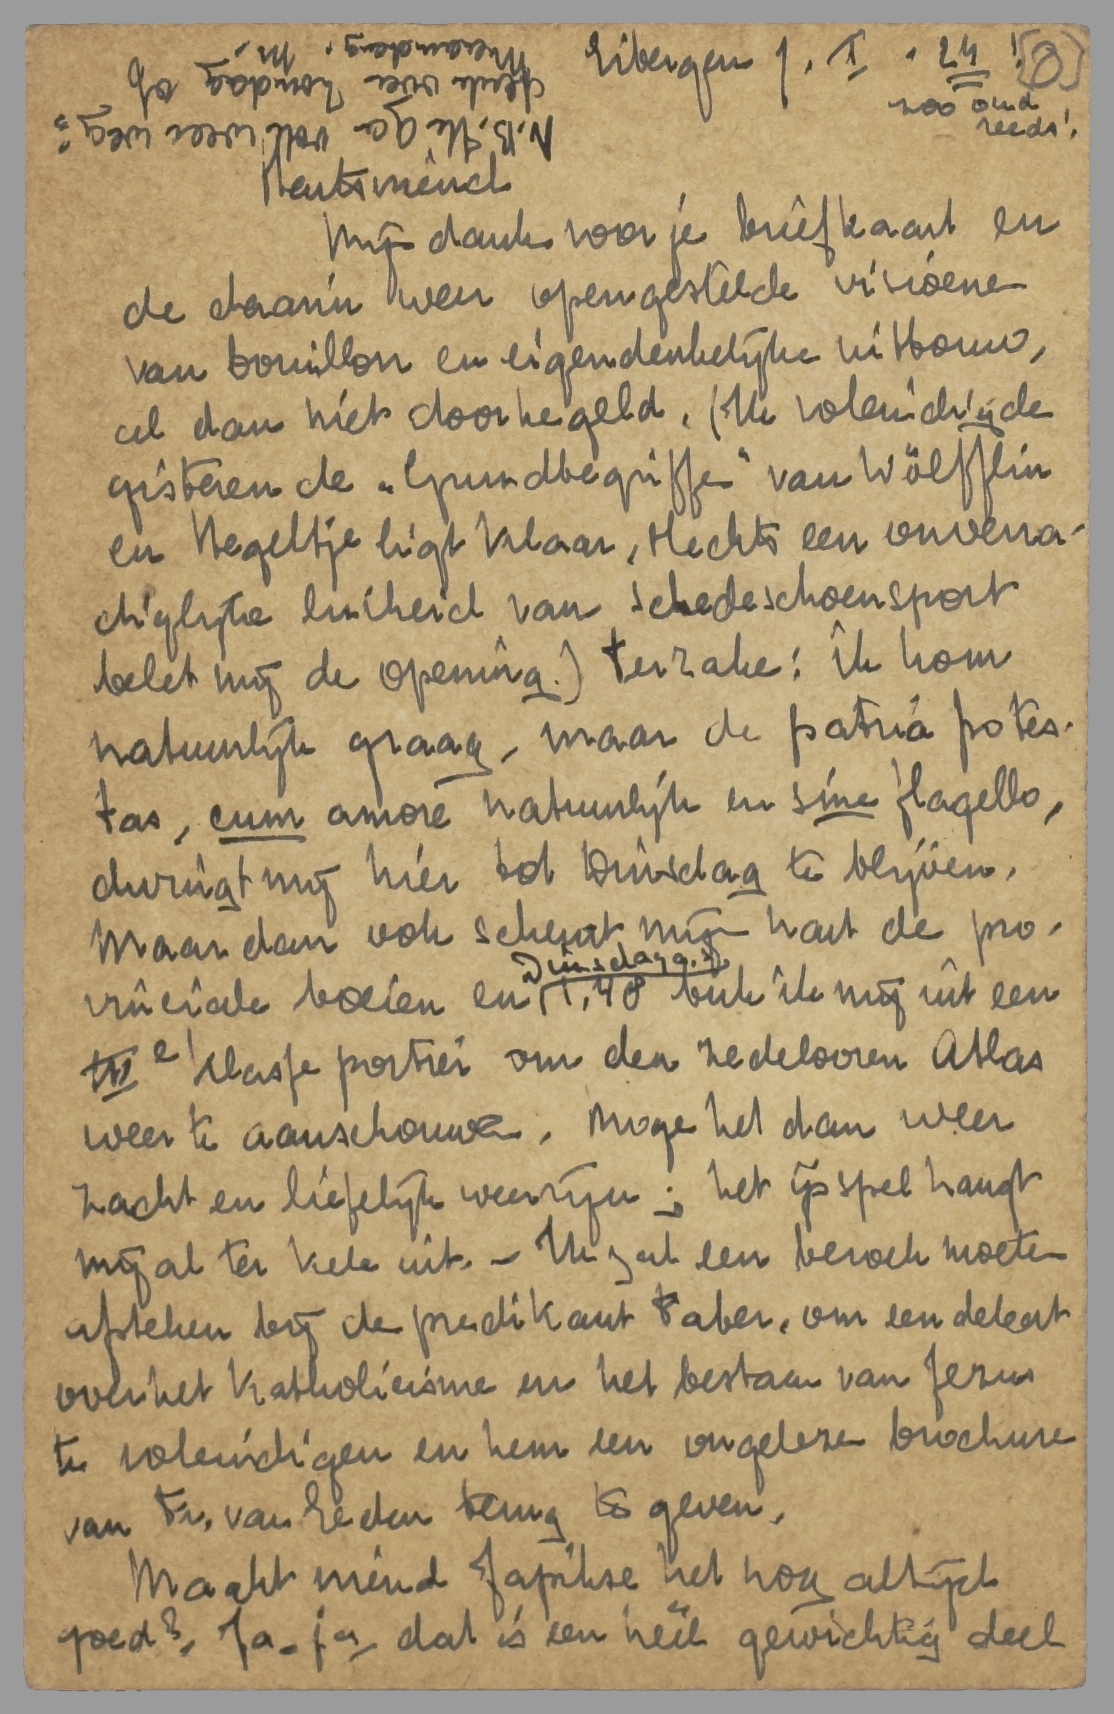 Eibergen 1. I. 24!! (8)
zoo oud
reeds!
N.B. Ik ga volt weer weg:
Zondag of
Maandag. M.
Hartsvriend
Mijn dank voor je briefkaart en
de daarin weer opengestelde visioene
van bouillon en eigendenkelijke uitbouw,
al dan niet doorhegeld. (Ik voleindigde
gisteren de „Grundbegriffe" van Wölfflin
en Hegeltje ligt klaar, slechts een onverra-
diglijke luiheid van schedeschoensport
belet mij de opening.) Terzake: ik kom
natuurlijk graag, maar de patria potes-
tas, cum amore natuurlijk en sine flagello,
dwingt mij hier tot Dinsdag te blijven.
Maar dan ook scheurt mijn hart de pro-
vinciale boeien en Dinsdag a.s. 1,48 buk ik mij uit een
IIIe klasse portier om den zedeloozen Atlas
weer te aanschouwen. Moge het dan weer
zacht en liefelijk weer zijn; het ijsspel hangt
mij al ter kele uit. – Ik zal een bezoek moeten
afsteken bij de predikant Faber, om een debat
over het Katholicisme en het bestaan van Jezus
te voleindigen en hem een ongeleze brochure
van Fr. van Eeden terug te geven.
Maakt vriend Japikse het nog altijd
goed? Ja-ja, dat is een heel gewichtig deel